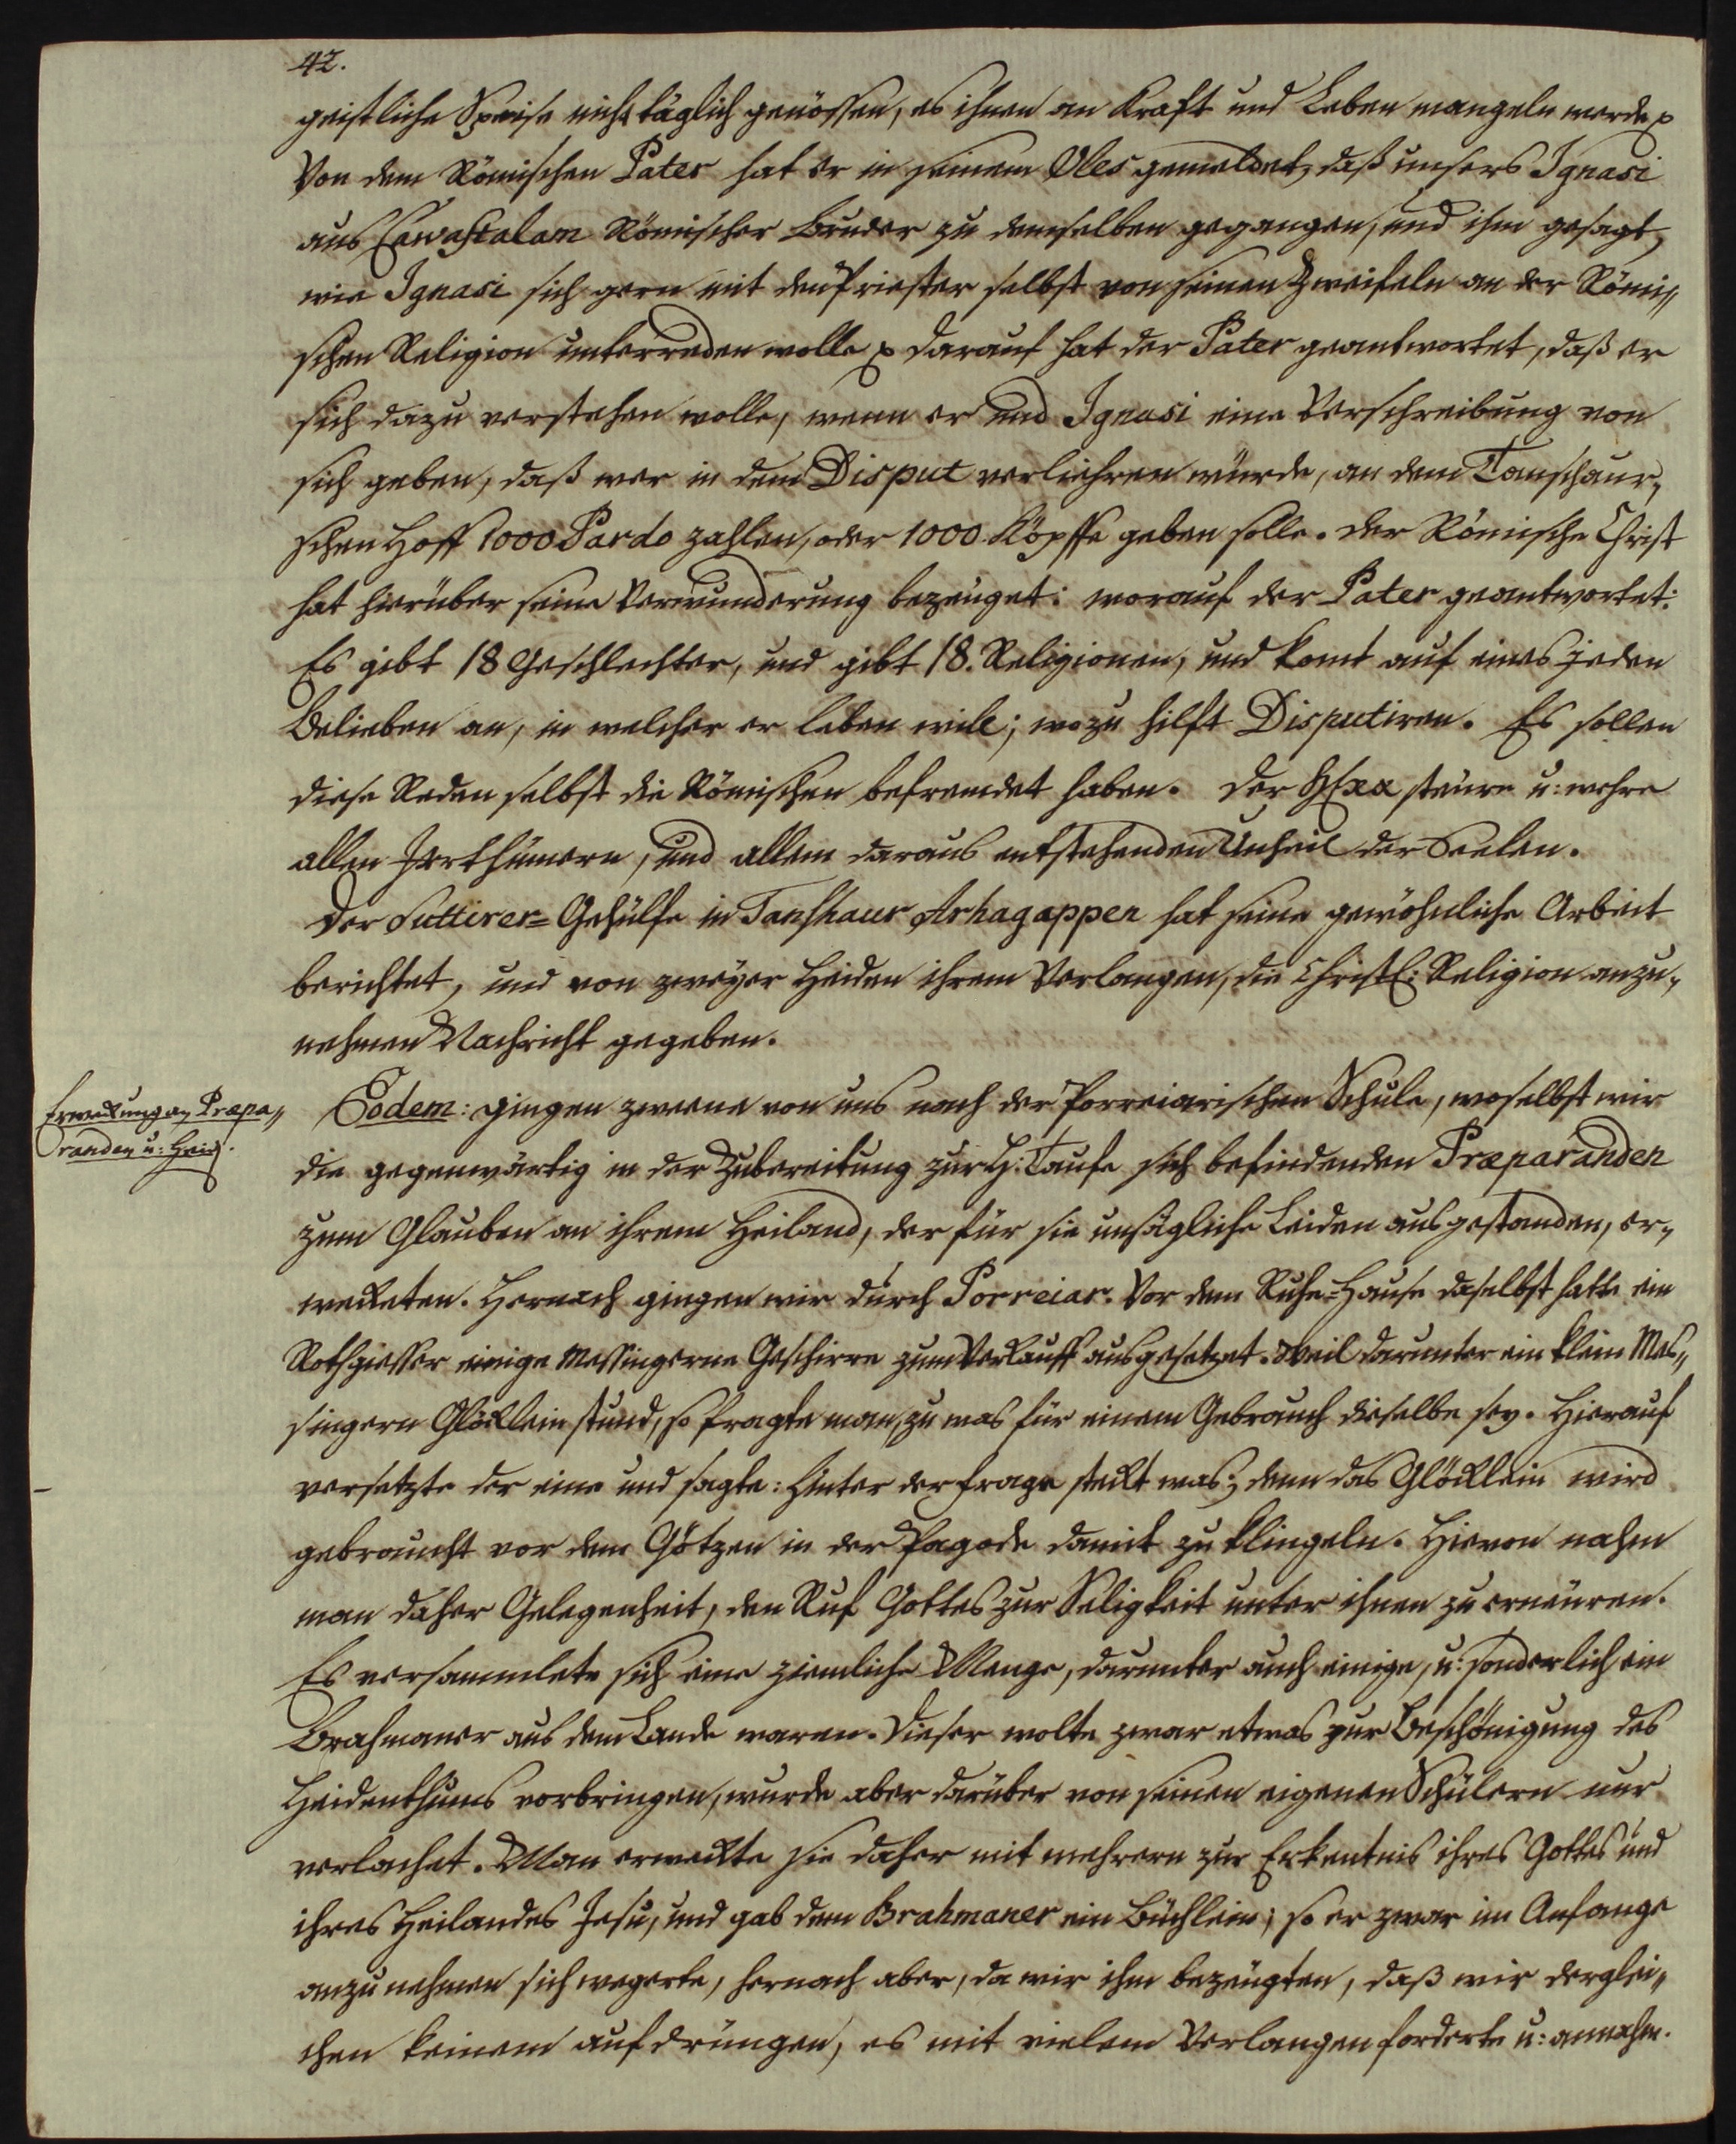 42.
geistliche Speise nicht täglich genössen, es ihnen an Kraft und Leben mangeln werde
Von dem Römischen Pater hat er in seinem Oles gemeldet, daß unsers Ignasi
aus Römischer Bruder zu demselben gegangen, und ihm gesagt,
wie Ignasi sich gern mit den Priester selbst von seinen Zweifeln an der Römi„
schen Religion unterreden wolle darauf hat der Pater geantwortet, daß er
sich dazu verstehen wolle, wenn er und Ignasi eine Verschreibung von
sich geben, daß wer in dem Disput verliehren würde, an dem Tanschaur„
schen Hoff 1000 Pardo zahlen, oder 1000. Köpffe geben solle. Der Römische Christ
hat hierüber seine Verwunderung bezeuget: worauf der Pater geantwortet:
Es gibt 18 Geschlechter, und gibt 18. Religionen, und komt auf eines jeden
Belieben an, in welcher er leben will; wozu hilft Disputiren. Es sollen
diese Reden selbst die Römischen befremdet haben. Der steure u: wehre
allen Irrthümern, und allem daraus entstehenden Unheil der Seelen.
Der Suttirer-Gehülfe in Tanschaur Arhagappen hat seine gewöhnliche Arbeit
berichtet, und von zweyer Heiden ihrem Verlangen, die Christl: Religion anzu„
nehmen Nachricht gegeben.
Erweckung an Præpa„
randen u: Heid.
Eodem: gingen zweene von uns nach der Porreiarischen Schule, woselbst wir
die gegenwärtig in der Zubereitung zur H: Taufe sich befindenden Præparanden
zum Glauben an ihrem Heiland, der für sie unsägliche Leiden ausgestanden, er„
weckten. Hernach gingen wir durch Porreiar. Vor dem Ruhe-Hause daselbst hatte ein
Rothgiesser einige Messingerne Geschirre zum Verkauff ausgesetzet. Weil darunter ein klein Mes„
singern Glöcklein stund, so fragte man, zu was für einem Gebrauch dieselbe sey. Hierauf
versetzte der eine und sagte: Hinter der Frage steckt was; denn das Glöcklein wird
gebraucht vor dem Götzen in der Pagode damit zu klingeln. Hievon nahm
man daher Gelegenheit, den Ruf Gottes zur Seligkeit unter ihnen zu erneuren.
Es versammlete sich eine ziemliche Menge, darunter auch einige, u: sonderlich ein
Brahmaner aus dem Lande waren. Dieser wolte zwar etwas zur Beschönigung des
Heidenthums vorbringen, wurde aber darüber von seinen eigenen Schülern nur
verlachet. Man erweckte sie daher mit mehrern zur Erkentnis ihres Gottes und
ihres Heilandes Jesu, und gab dem Brahmaner ein Büchlein; so er zwar im Anfange
anzunehmen sich wegerte, hernach aber, da wir ihm bezeugten, daß wir derglei„
chen keinem aufdrüngen, es mit vielem Verlangen forderte u: annahm.